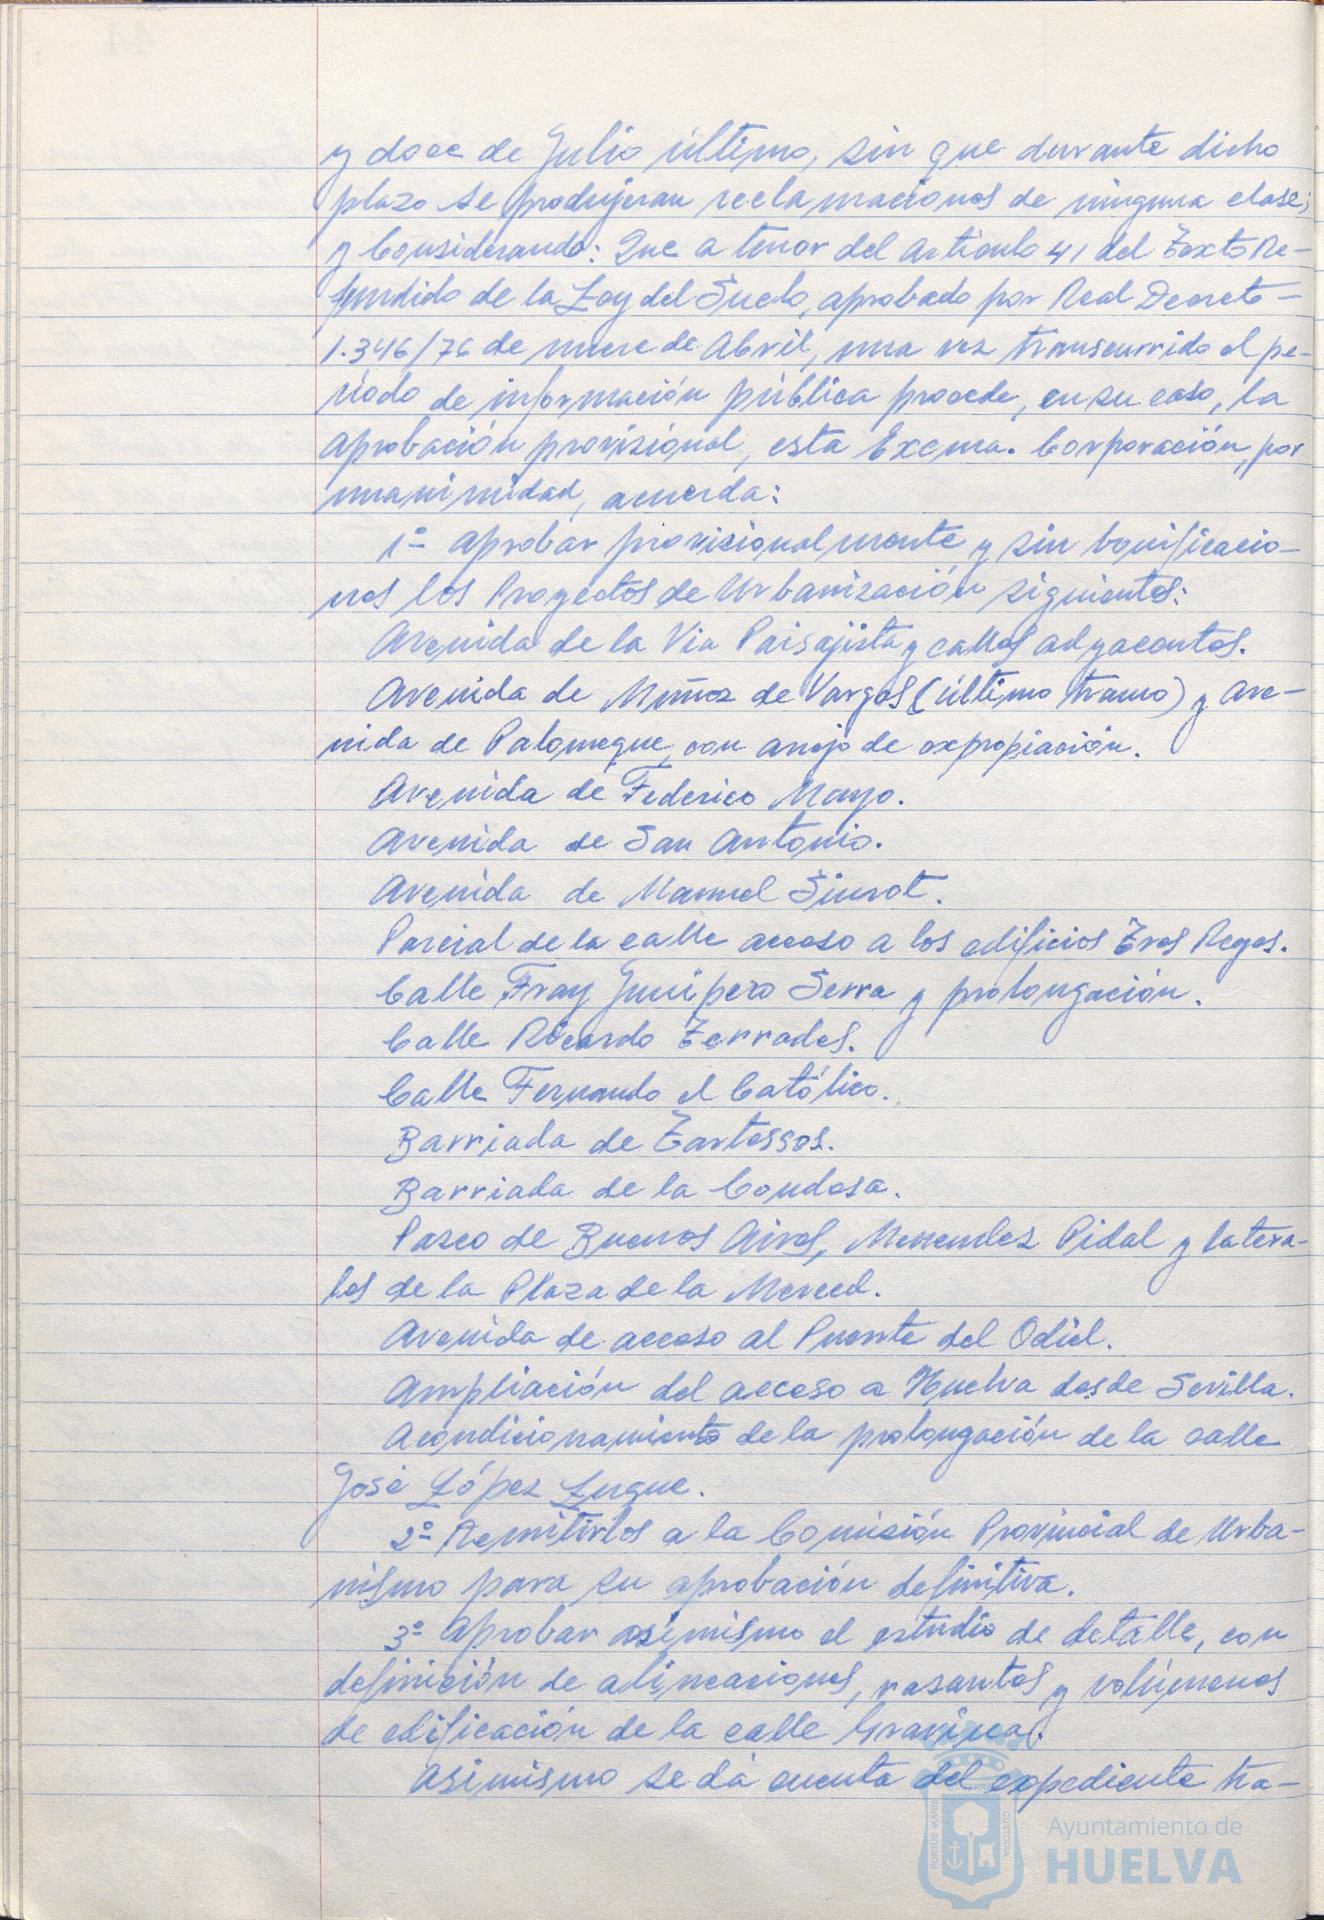 y doce de Julio último, sin que durante dicho
plazo se produjeran reclamaciones de ninguna clase;
y Considerando: Que a tenor del artículo 41 del Texto Re-
fundido de la Ley del Suelo, aprobado por Real Decreto-
1.346/76 de nueve de Abril, una vez transcurrido el pe-
ríodo de información pública procede, en su caso, la
aprobación provisional, esta Excma. Corporación, por
unanimidad, acuerda:
1º- Aprobar provisionalmente y sin bonificacio-
nes los Proyectos de Urbanización siguientes:
Avenida de la Via Paisajista y calles adyacentes.
Avenida de Muñoz de Vargas (último tramo) y Ave-
nida de Palomeque, con anejo de expropiación.
Avenida de Federico Mayo.
Avenida de San Antonio.
Avenida de Manuel Siurot.
Parcial de la calle acceso a los edificios Tres Reyes.
Calle Fray Junípero Serra y prolongación.
Calle Ricardo Terrades.
Calle Fernando el Católico.
Barriada de Tartessos.
Barriada de la Condesa.
Paseo de Buenos Aires, Menendez Pidal y latera-
les de la Plaza de la Merced.
Avenida de acceso al Puente del Odiel.
Ampliación del acceso a Huelva desde Sevilla.
Acondicionamiento de la prolongación de la calle
José López Luque.
2º- Remitirlos a la Comisión Provincial de Urba-
nismo para su aprobación definitiva.
3º- Aprobar asimismo el estudio de detalle, con
definición de alineaciones, rasantes y volúmenes
de edificación de la calle Gravina.
Asimismo se dá cuenta del expediente tra-
PORTUS MARIS
CUSTODIA
Ayuntamiento de
HUELVA